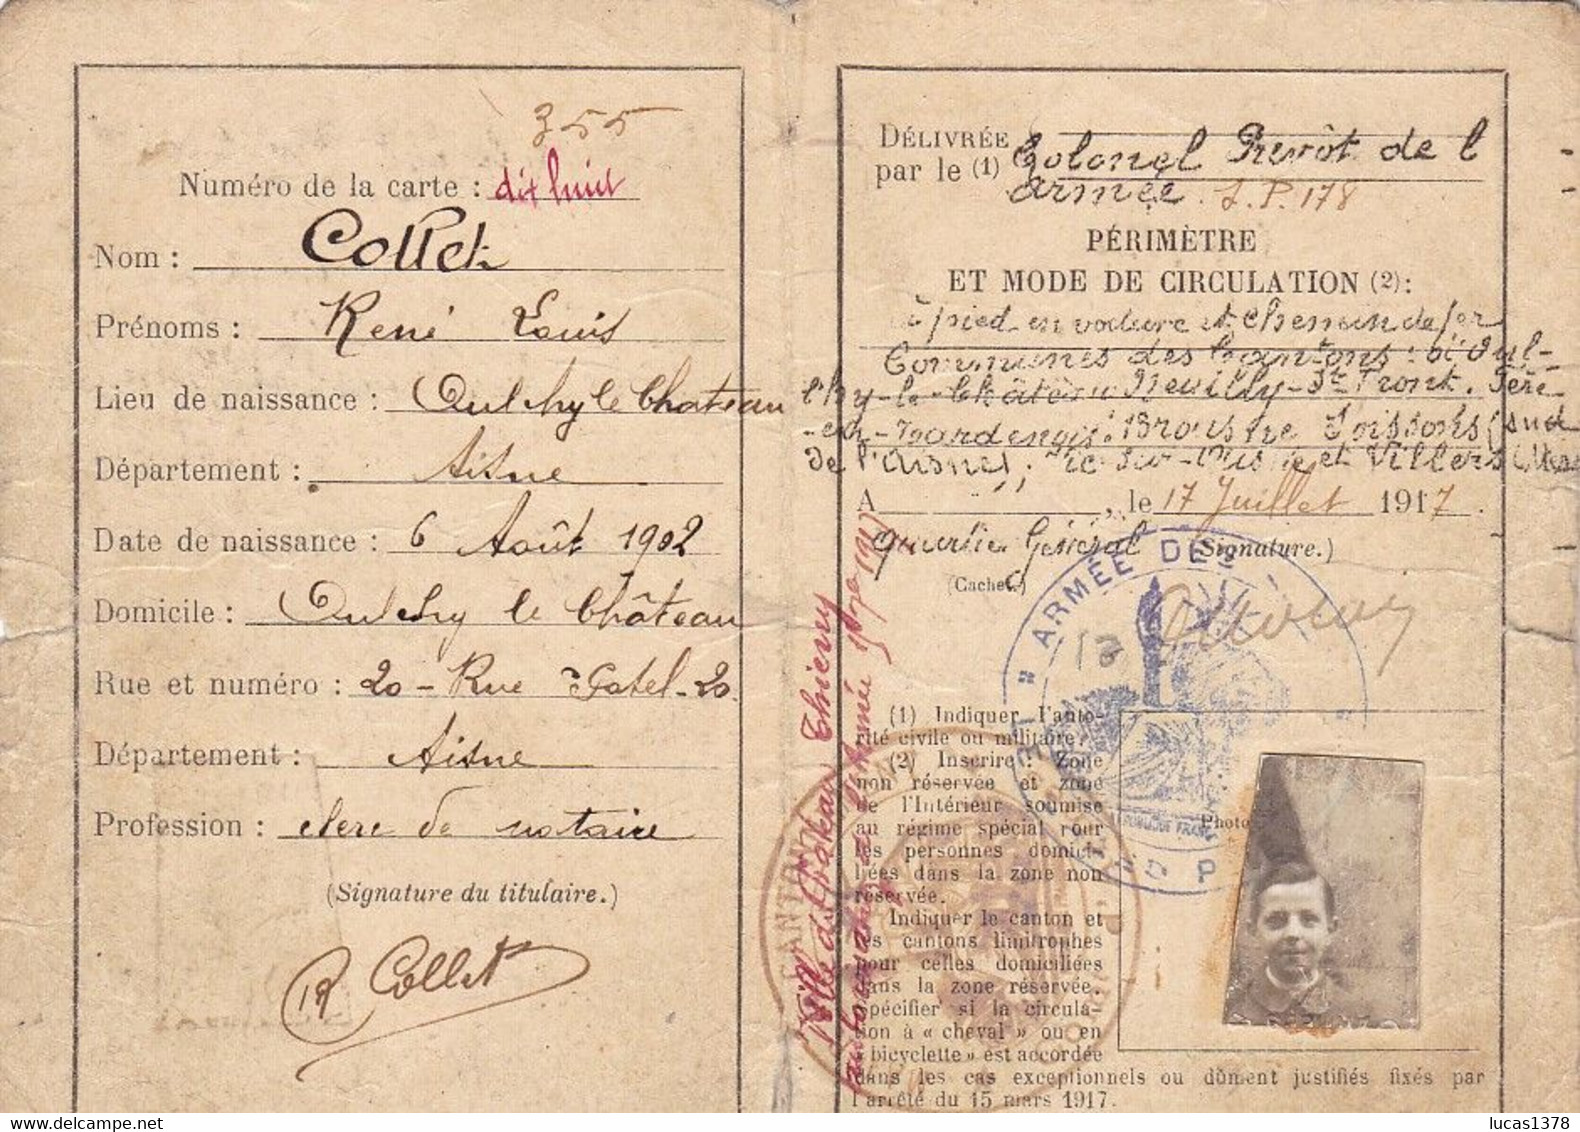 355
Numéro de la carte : dix huit
Nom : Collet
Prénoms : René Louis
Lieu de naissance : Oulchy le Chateau
Département : Aisne
Date de naissance : 6 Août 1902
Domicile : Oulchy le Château
Rue et numéro : 20 - Rue Potel - 20
Département : Aisne
Profession : clerc de notaire
(Signature du titulaire.)
R Collet
DÉLIVRÉE
par le (1) Colonel Prévôt de l
armée. L.P. 178
PÉRIMÈTRE
ET MODE DE CIRCULATION (2):
à pied en voiture et chemin de fer
Communes des Cantons : d'Oul-
chy-le-Château Neuilly-St Front. Fère
-en-Tardenois. Soissons (sud
de l'Aisne), Vic-sur-Aisne et Villers
A , le 17 Juillet 1917.
Quartier Général (Signature.)
(Cachet.)
ARMÉE DE
RÉPUBLIQUE FRANÇ
CANTON
Ville de Château Thierry
(1) Indiquer l'auto-
rité civile ou militaire.
(2) Inscrire : Zone
non réservée et zone
de l'Intérieur soumise
au régime spécial pour
les personnes domici-
liées dans la zone non
réservée.
Indiquer le canton et
les cantons limitrophes
pour celles domiciliées
dans la zone réservée.
Spécifier si la circula-
tion à « cheval » ou en
« bicyclette » est accordée
dans les cas exceptionnels ou dûment justifiés fixés par
l'arrêté du 15 mars 1917.
Photo
lucas1378